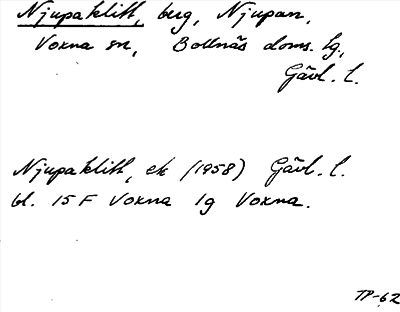 Njupaklitt, berg, Njupån,
Voxna sn, Bollnäs doms. tg,
Gävl. l.
Njupaklitt, ek (1958) Gävl. l.
bl. 15 F Voxna lg Voxna.
TP-62